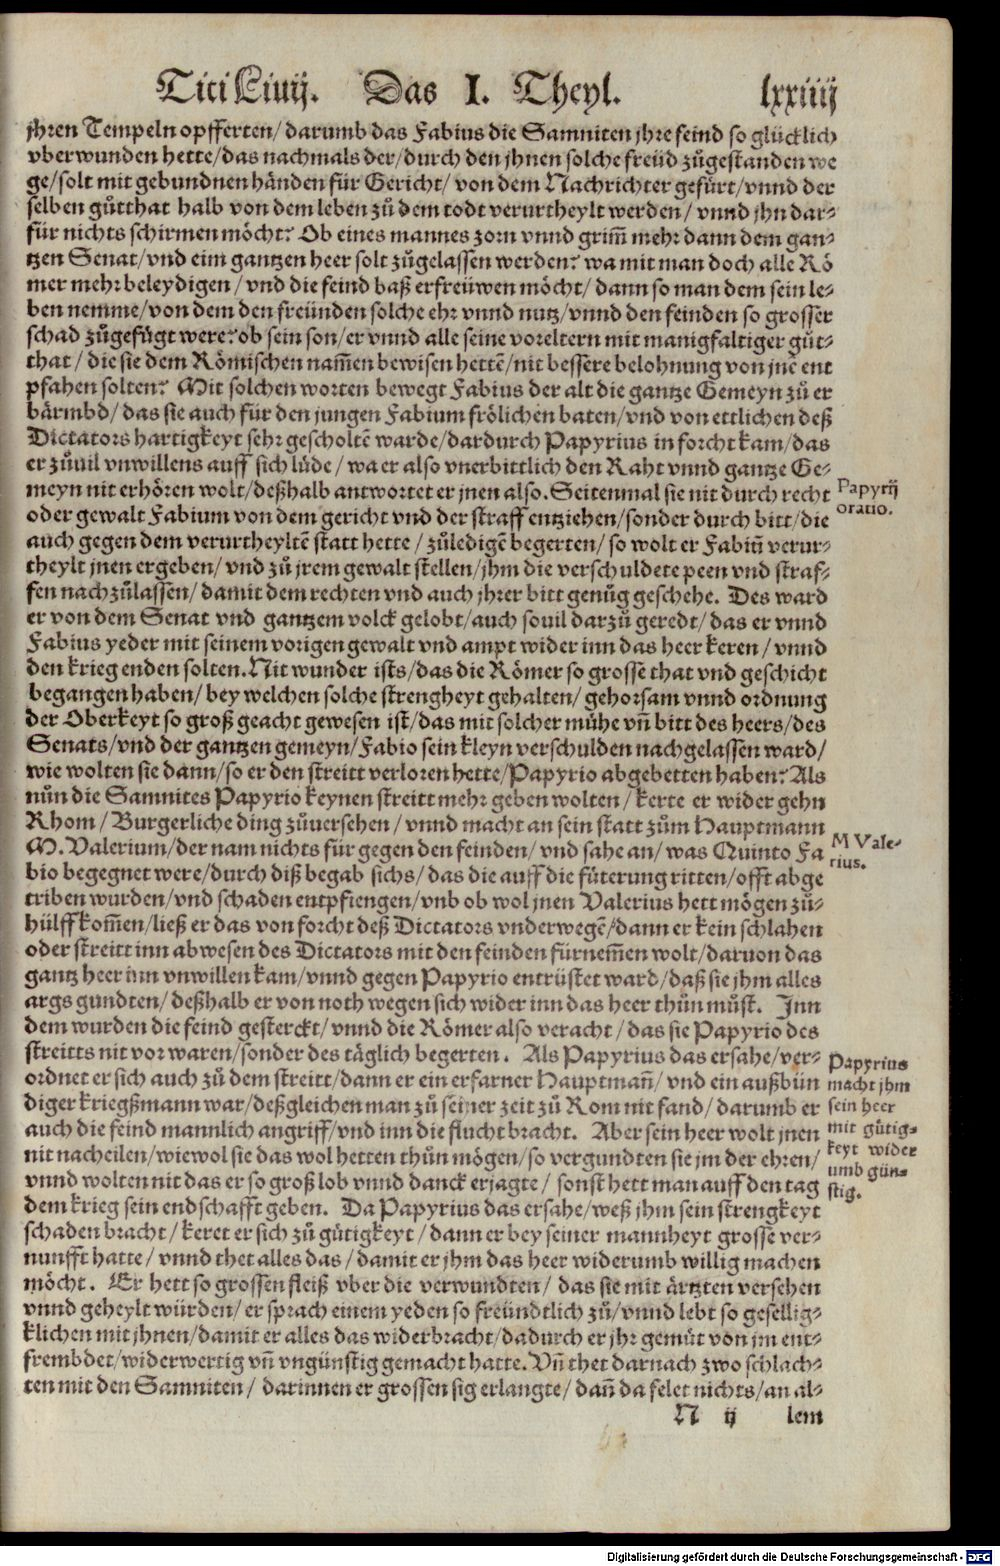 Titi Liuij. Das I. Theyl. lxxiiij
jhren Tempeln opfferten/ darumb das Fabius die Samniten jhre feind so glücklich
vberwunden hette/ das nachmals der/ durch den jhnen solche freüd zůgestanden we
ge/ solt mit gebundnen händen für Gericht/ von dem Nachrichter gefürt/ vnnd der
selben gůtthat halb von dem leben zů dem todt verurtheylt werden/ vnnd jhn dar-
für nichts schirmen möcht? Ob eines mannes zorn vnnd grim̃ mehr dann dem gan-
tzen Senat/ vnd eim gantzen heer solt zůgelassen werden? wa mit man doch alle Rö
mer mehr beleydigen/ vnd die feind baß erfreüwen möcht/ dann so man dem sein le-
ben nemme/ von dem den freünden solche ehr vnnd nutz/ vnnd den feinden so grosser
schad zůgefügt were? ob sein son/ er vnnd alle seine voreltern mit manigfaltiger gůt-
that/ die sie dem Römischen nam̃en bewisen hettẽ/ nit bessere belohnung von jnẽ ent
pfahen solten? Mit solchen worten bewegt Fabius der alt die gantze Gemeyn zů er
bärmbd/ das sie auch für den jungen Fabium frölichen baten/ vnd von ettlichen deß
Dictators hartigkeyt sehr gescholtẽ warde/ dardurch Papyrius in forcht kam/ das
er zůuil vnwillens auff sich lüde/ wa er also vnerbittlich den Raht vnnd gantze Ge-
meyn nit erhören wolt/ deßhalb antwortet er jnen also. Seitenmal sie nit durch recht
Papyrij
oratio.
oder gewalt Fabium von dem gericht vnd der straff entziehen/ sonder durch bitt/ die
auch gegen dem verurtheyltẽ statt hette/ zůledigẽ begerten/ so wolt er Fabiũ verur-
theylt jnen ergeben/ vnd zů jrem gewalt stellen/ jhm die verschuldete peen vnd straf-
fen nachzůlassen/ damit dem rechten vnd auch jhrer bitt genůg geschehe. Des ward
er von dem Senat vnd gantzem volck gelobt/ auch souil darzů geredt/ das er vnnd
Fabius yeder mit seinem vorigen gewalt vnd ampt wider inn das heer keren/ vnnd
den krieg enden solten. Nit wunder ists/ das die Römer so grosse that vnd geschicht
begangen haben/ bey welchen solche strengheyt gehalten/ gehorsam vnnd ordnung
der Oberkeyt so groß geacht gewesen ist/ das mit solcher mühe vñ bitt des heers/ des
Senats/ vnd der gantzen gemeyn/ Fabio sein kleyn verschulden nachgelassen ward/
wie wolten sie dann/ so er den streitt verloren hette/ Papyrio abgebetten haben? Als
nůn die Samnites Papyrio keynen streitt mehr geben wolten/ kerte er wider gehn
Rhom/ Burgerliche ding zůuersehen/ vnnd macht an sein statt zům Hauptmann
M. Valerium/ der nam nichts für gegen den feinden/ vnd sahe an/ was Quinto Fa
M Vale-
rius.
bio begegnet were/ durch diß begab sichs/ das die auff die füterung ritten/ offt abge
triben wurden/ vnd schaden entpfiengen/ vnb ob wol jnen Valerius hett mögen zů-
hülff kom̃en/ ließ er das von forcht deß Dictators vnderwegẽ/ dann er kein schlahen
oder streitt inn abwesen des Dictators mit den feinden fürnem̃en wolt/ daruon das
gantz heer inn vnwillen kam/ vnnd gegen Papyrio entrüstet ward/ daß sie jhm alles
args gundten/ deßhalb er von noth wegen sich wider inn das heer thůn můst. Inn
dem wurden die feind gesterckt/ vnnd die Römer also veracht/ das sie Papyrio des
streitts nit vor waren/ sonder des täglich begerten. Als Papyrius das ersahe/ ver-
ordnet er sich auch zů dem streitt/ dann er ein erfarner Hauptmañ/ vnd ein außbün
diger kriegßmann war/ deßgleichen man zů seiner zeit zů Rom nit fand/ darumb er
auch die feind mannlich angriff/ vnd inn die flucht bracht. Aber sein heer wolt jnen
nit nacheilen/ wiewol sie das wol hetten thůn mögen/ so vergundten sie jm der ehren/
vnnd wolten nit das er so groß lob vnnd danck erjagte/ sonst hett man auff den tag
Papyrius
macht jhm
sein heer
mit gütig-
keyt wider
umb gün-
stig.
dem krieg sein endschafft geben. Da Papyrius das ersahe/ weß jhm sein strengkeyt
schaden bracht/ keret er sich zů gütigkeyt/ dann er bey seiner mannheyt grosse ver-
nunfft hatte/ vnnd thet alles das/ damit er jhm das heer widerumb willig machen
möcht. Er hett so grossen fleiß vber die verwundten/ das sie mit ärtzten versehen
vnnd geheylt würden/ er sprach einem yeden so freündtlich zů/ vnnd lebt so gesellig-
klichen mit jhnen/ damit er alles das widerbracht/ dadurch er jhr gemüt von jm ent-
frembdet/ widerwertig vñ vngünstig gemacht hatte. Vñ thet darnach zwo schlach-
ten mit den Samniten/ darinnen er grossen sig erlangte/ dañ da felet nichts/ an al-
N ij lem
Digitalisierung gefördert durch die Deutsche Forschungsgemeinschaft - DFG